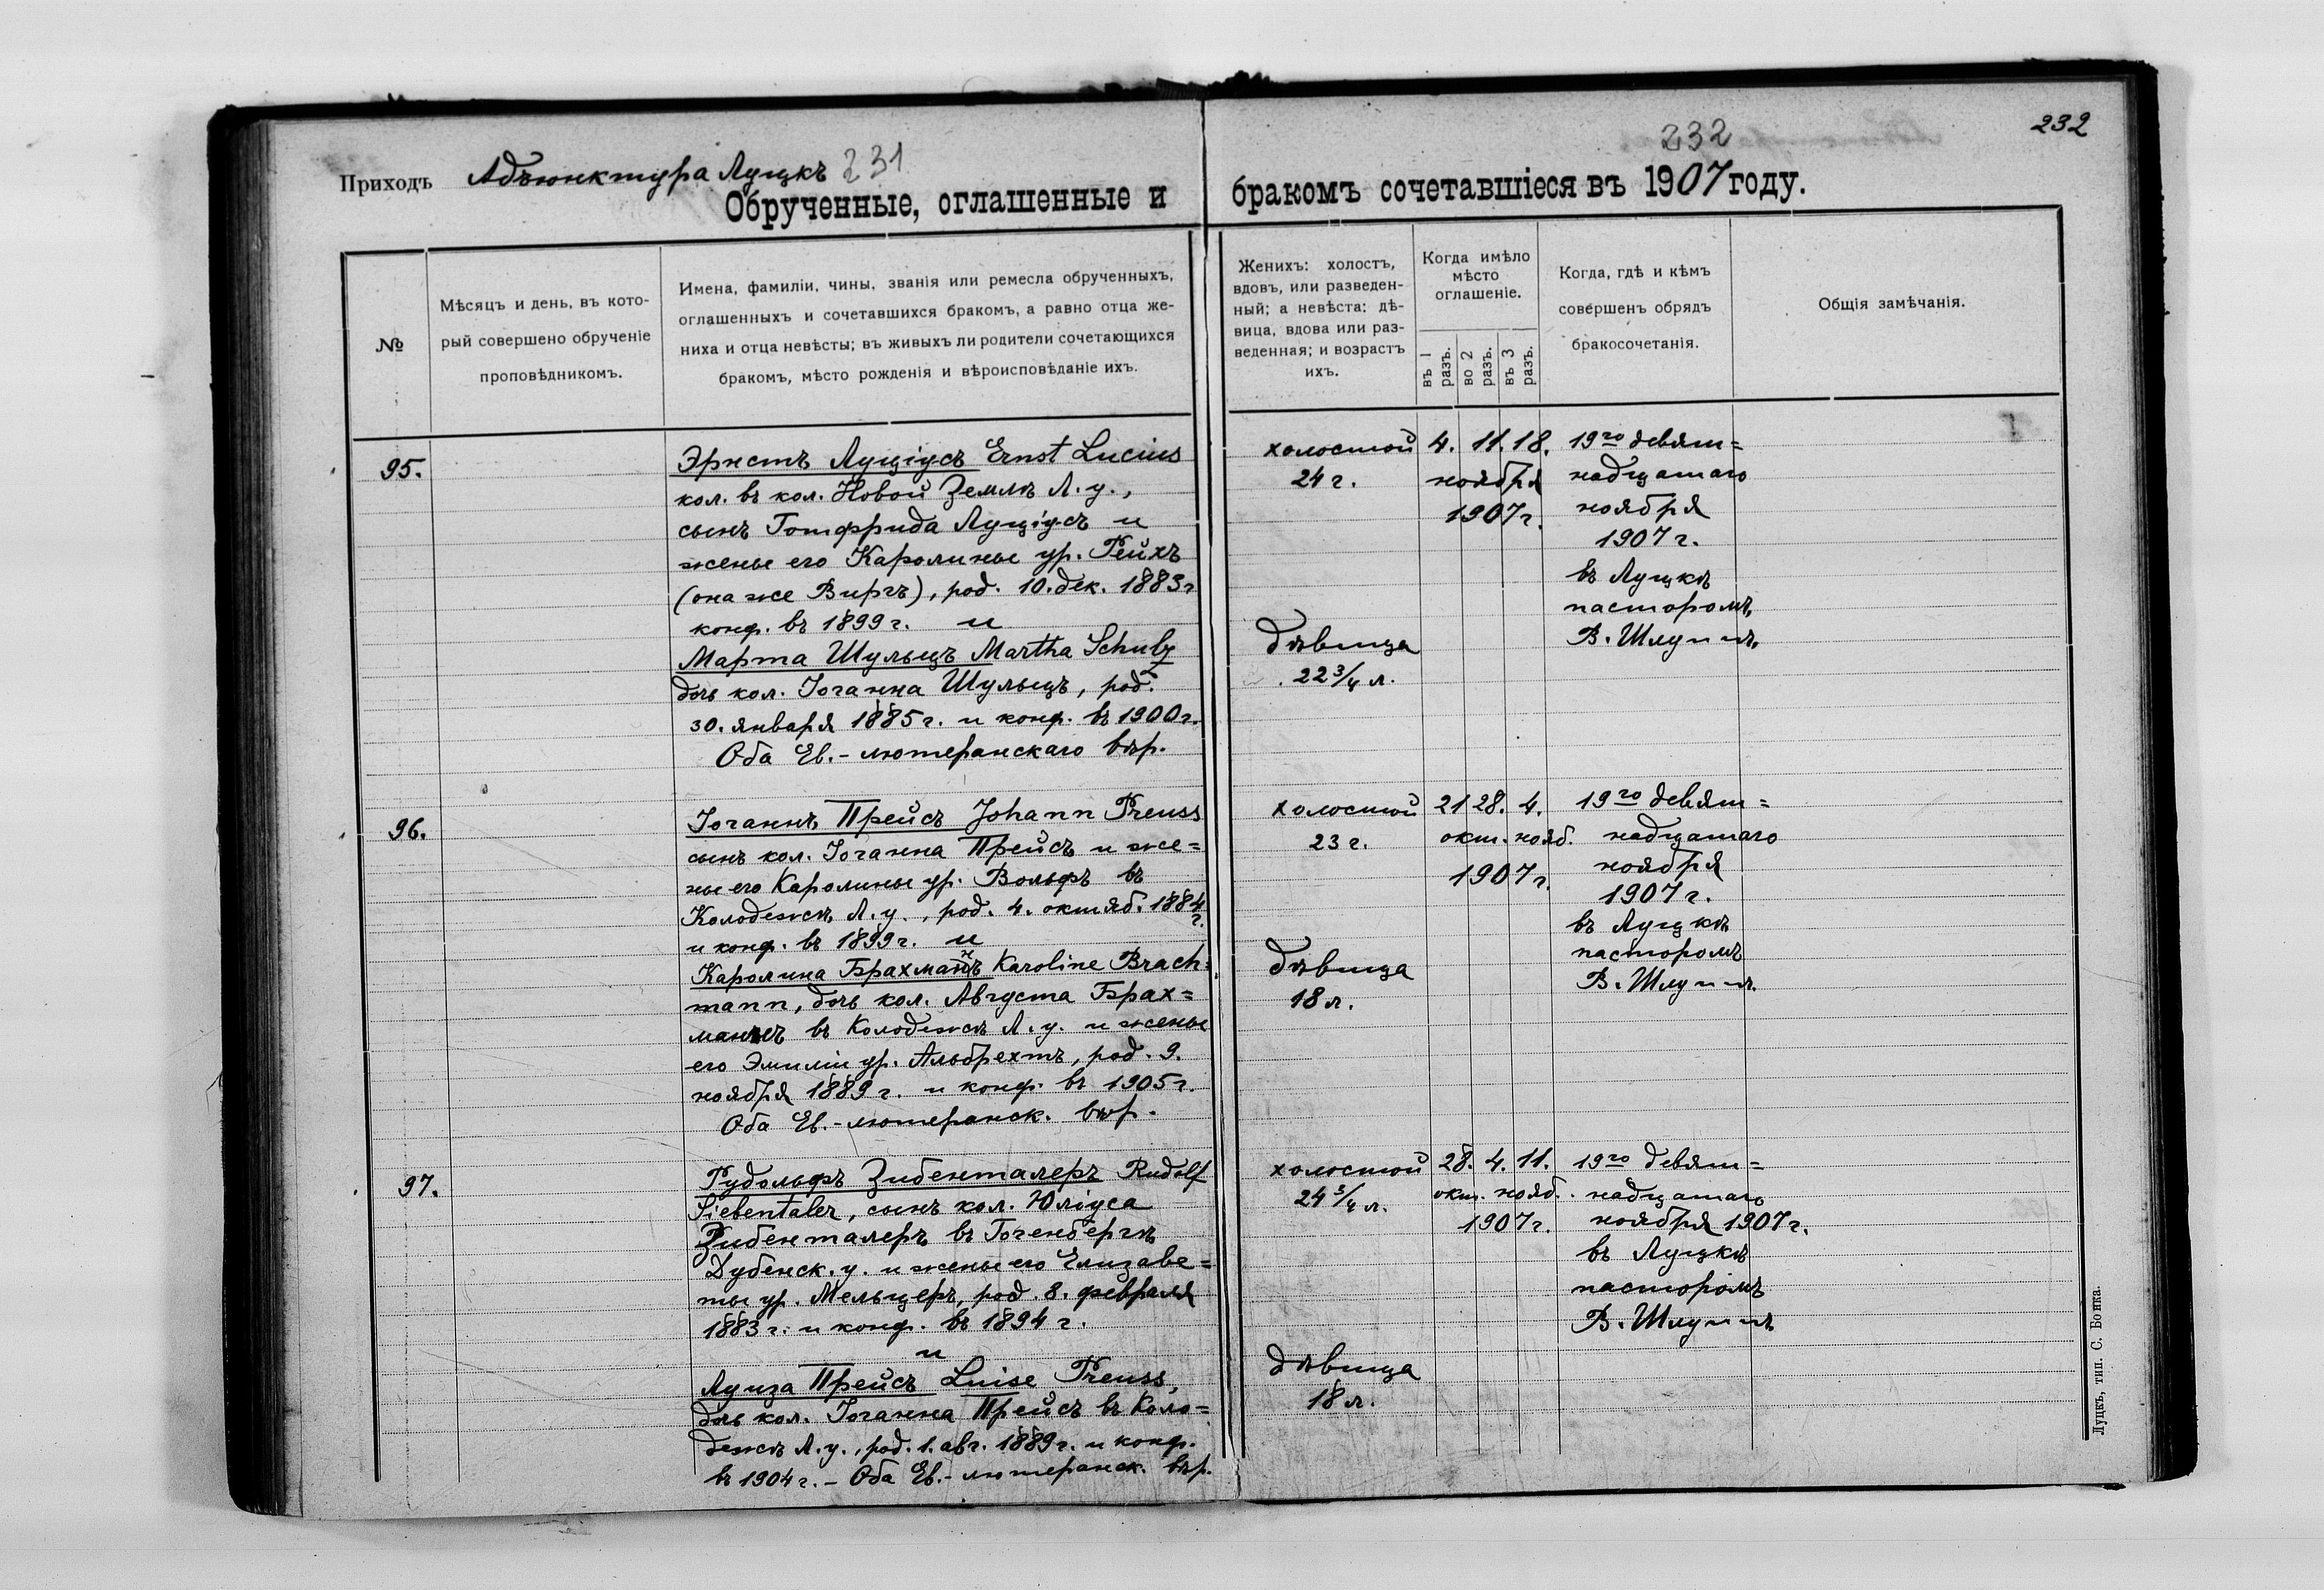 Приходъ Адъюнктура Луцкъ 231
Обрученные, оглашенные и
№
Мѣсяцъ и день, въ кото-
рый совершено обрученіе
проповѣдникомъ.
Имена, фамиліи, чины, званія или ремесла обрученныхъ,
оглашенныхъ и сочетавшихся бракомъ, а равно отца же-
ниха и отца невѣсты; въ живыхъ ли родители сочетающихся
бракомъ, мѣсто рожденія и вѣроисповѣданіе ихъ.
95.
Эрнстъ Луціусъ Ernst Lucius
кол. въ кол. Новой Землѣ Л. у.,
сынъ Готфрида Луціусъ и
жены его Каролины ур. Рейхъ
(она же Виргъ), род. 10. дек. 1883 г
конф. въ 1899 г. и
Марта Шульцъ Martha Schulz
дочь кол. Іоганна Шульцъ, род.
30. января 1885 г. и конф. въ 1900 г.
Оба Ев.-лютеранскаго вѣр.
96.
Іоганнъ Прейсъ Johann Preuss
сынъ кол. Іоганна Прейсъ и же=
ны его Каролины ур. Вольфъ въ
Колодежѣ Л. у., род. 4. октяб. 1884
г.
и конф. въ 1899 г. и
Каролина Брахманнъ Karoline Brach=
mann, дочь кол. Августа Брах=
маннъ въ Колодежѣ Л. у. и жены
его Эмиліи ур. Альбрехтъ, род. 9.
ноября 1889 г. и конф. въ 1905 г.
Оба Ев.-лютеранск. вѣр.
97.
Рудольфъ Зибенталеръ Rudolf
Siebentaler, сынъ кол. Юліуса
Зибенталеръ въ Гогенбергѣ
Дубенск. у. и жены его Елизаве=
ты ур. Мельцеръ, род. 8. февраля
1883 г. и конф. въ 1894 г.
и
Луиза Прейсъ Luise Preuss,
дочь кол. Іоганна Прейсъ въ Коло=
дежѣ Л. у., род. 1. авг. 1889 г. и конф.
въ 1904 г. – Оба Ев.-лютеранск. вѣр.
232
232
бракомъ сочетавшіеся въ 1907 году.
Женихъ: холостъ,
вдовъ, или разведен-
ный; а невѣста: дѣ-
вица, вдова или раз-
веденная; и возрастъ
ихъ.
Когда имѣло
мѣсто
оглашеніе.
въ 1 разъ.
во 2 разъ.
въ 3 разъ.
Когда, гдѣ и кѣмъ
совершенъ обрядъ
бракосочетанія.
Общія замѣчанія.
холостой
24 г.
4. 11. 18.
ноября
1907 г.
19го девят=
надцатаго
ноября
1907 г.
въ Луцкѣ
пасторомъ
В. Шлуппъ
дѣвица
22 3/4 л.
холостой
23 г.
21 28. 4.
окт. нояб.
1907 г.
19го девят=
надцатаго
ноября
1907 г.
въ Луцкѣ
пасторомъ
В. Шлуппъ
дѣвица
18 л.
холостой
24 3/4 л.
28. 4. 11.
окт. нояб.
1907 г.
19го девят=
надцатаго
ноября 1907 г.
въ Луцкѣ
пасторомъ
В. Шлуппъ
дѣвица
18 л.
Луцкъ, тип. С. Бонка.